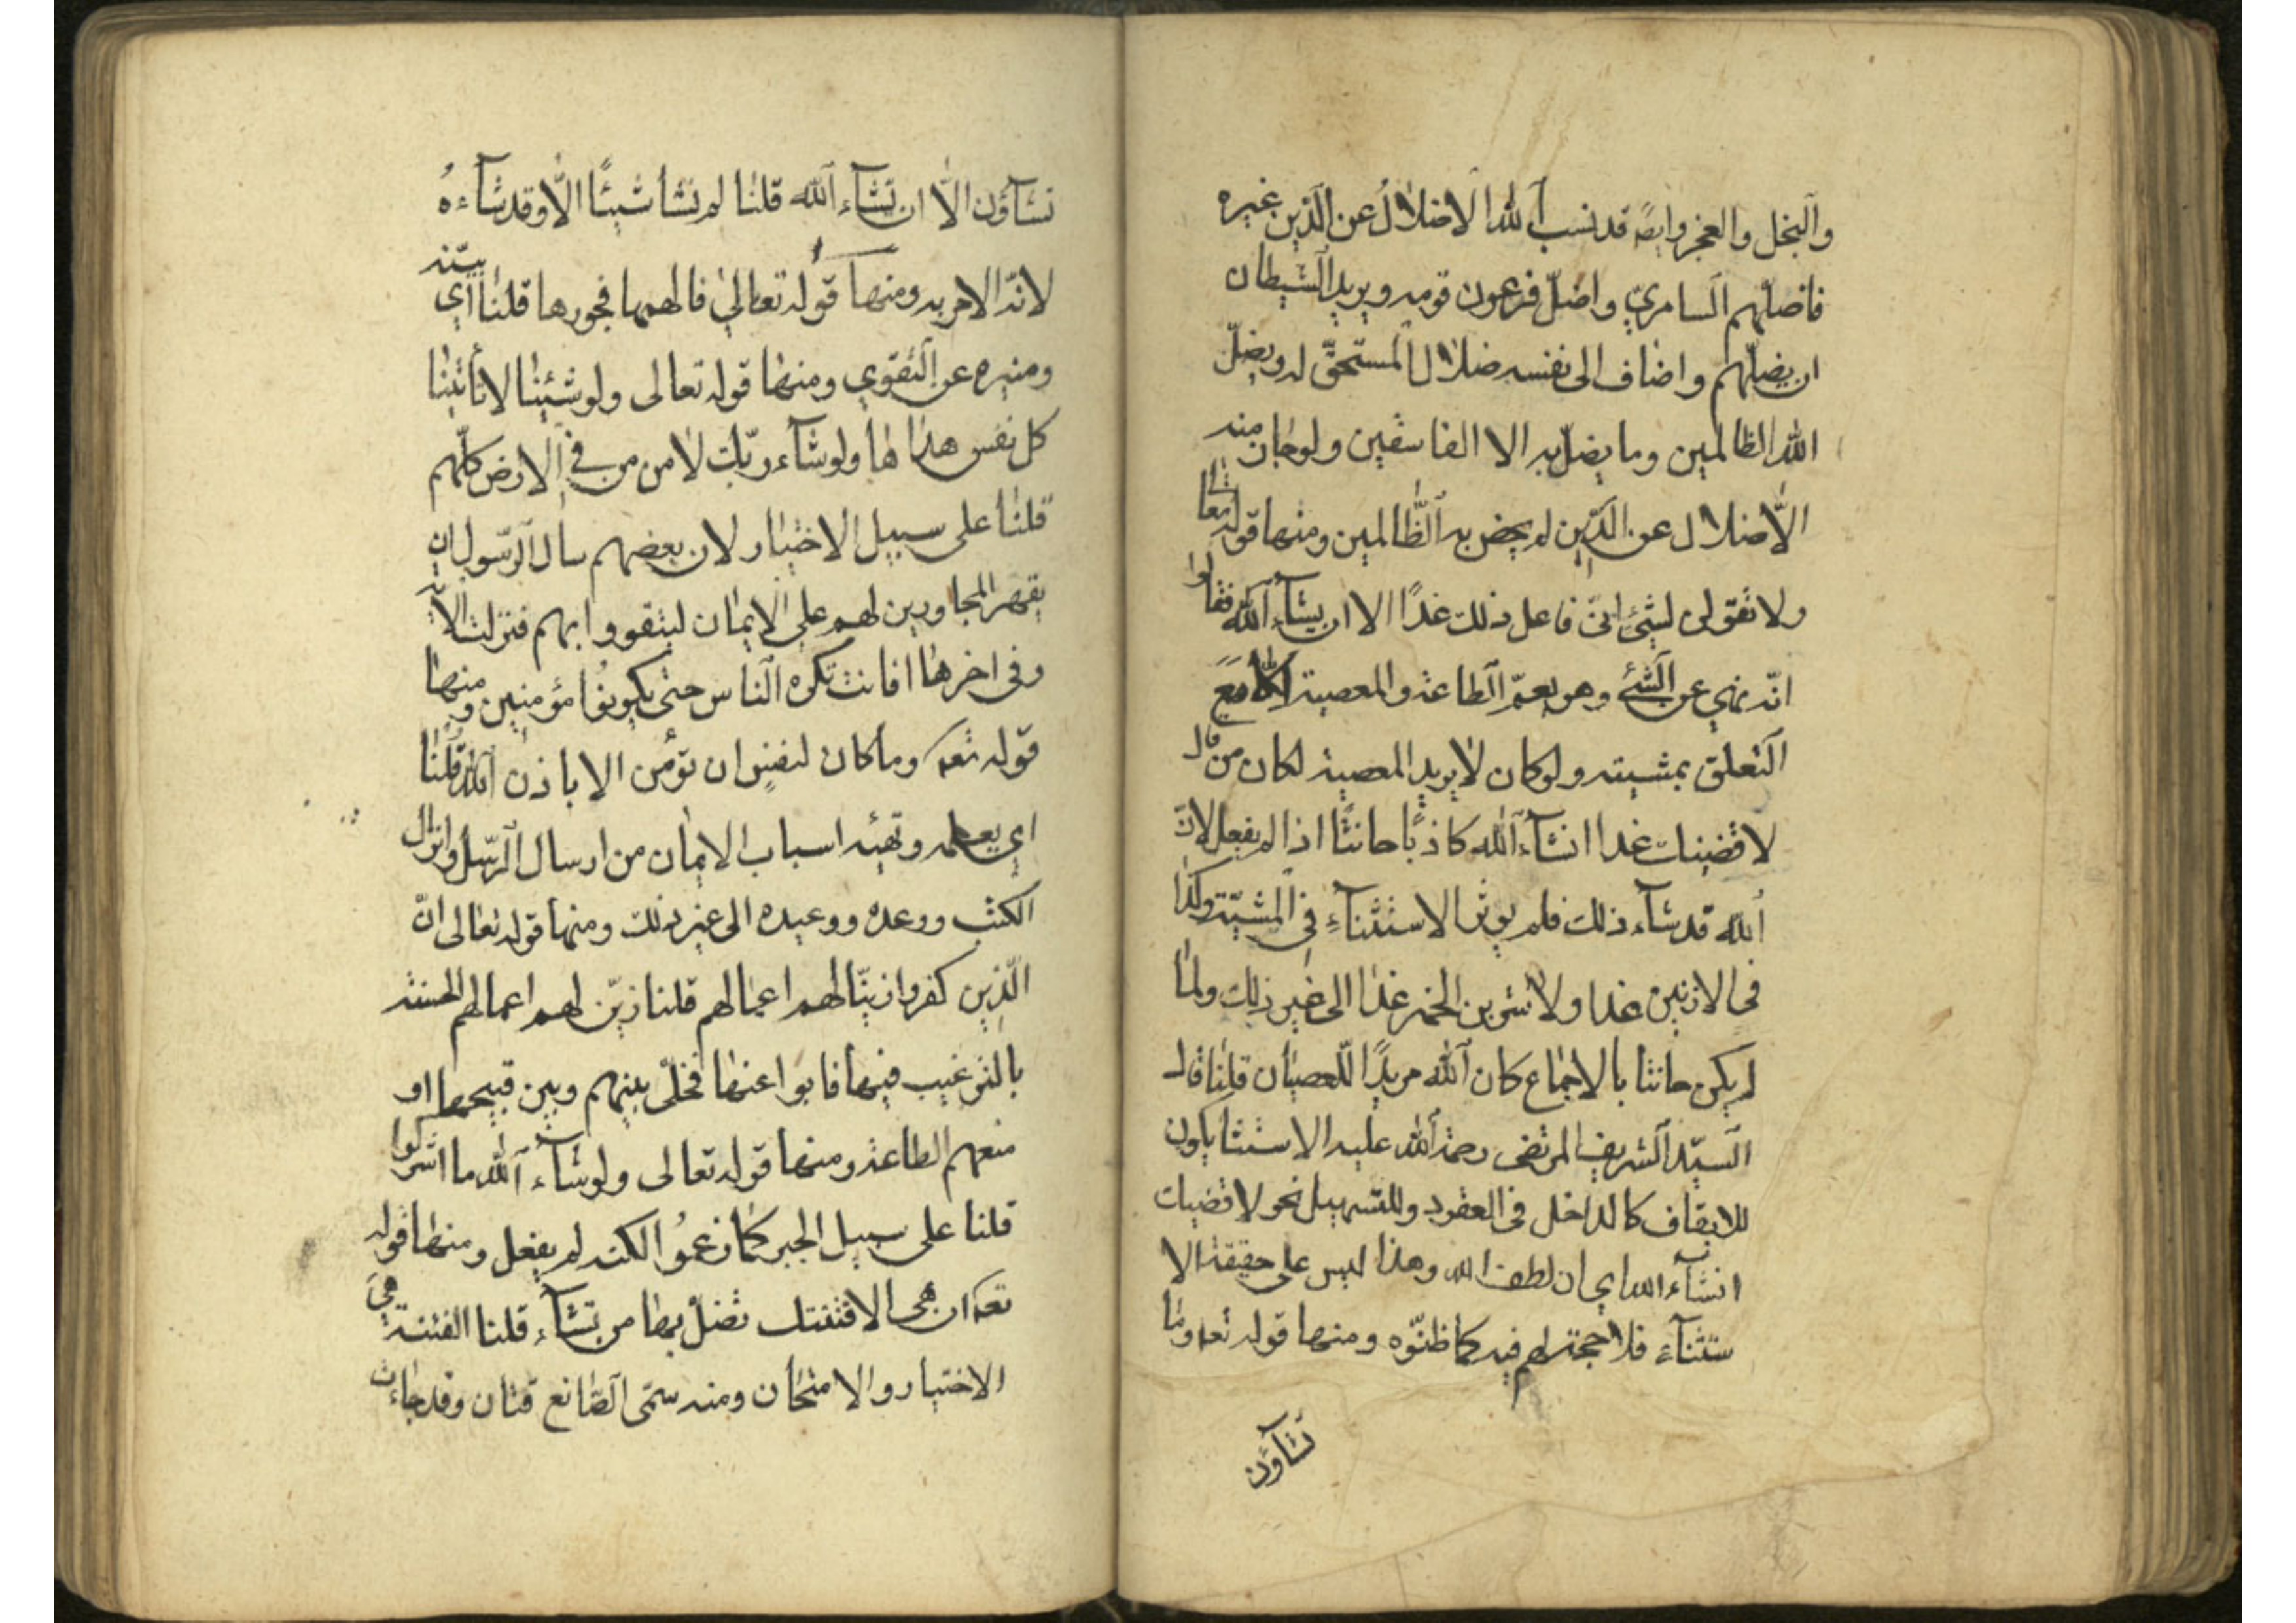 والبخل والعجز وايضً قد نسب الله الاضلالُ عن الّذين غيره
فاضلّهم السامريّ واضلّ فرعون قومه ويريد الشيطان
ان يضلّهم واضاف الى نفسه ضلال المستحقّ له ويضلّ
الله الظالمين وما يضلّ به الا الفاسقين ولو جان منه
الاّضلال عن الدّين لم يخض به الظّالمين ومنها قوله تعالى
ولا تقولن لشئ انّى فاعل ذلك غدًا الا ان يشآء الله فقالوا
انّه نهي عن الشئ وهو يعمّ الطاعة والمعصية الّا مع
التعلق بمشيته ولو كان لا يريد المعصية لكان من قال
لاقضينك غدا انشآء الله كاذبًا حانثًا اذا لم يفعل لانّ
الله قد شآء ذلك فلم يؤثر الاستثنآء فى المشيّة وكذا
فى لازنين غدا ولاشربن الخمر غدا الى غير ذلك ولما
لم يكن حانثا بالاجماع كان الله مريدًا للعصيان قلنا قال
السيّد الشريف المرتضى رحمة الله عليه الاستثنا يكون
للايقاف كالداخل فى العقود وللتسهيل نحو لاقضينك
انشآء الله اي ان لطف الله وهذا ليس على حقيقة الا
ستثنآء فلا حجة لهم فيه كما ظنّوه ومنها قوله تعه وما
تشآؤن
تشآؤن الّا ان تشآء الله قلنا لم نشأ شيئًا الّا وقد شآءهُ
لانّه الامر به ومنها قوله تعالي فالهمها فجورها قلنا اي بيّنه
وميزه عن التقوي ومنها قوله تعالى ولو شئنا لاتأتينا
كل نفس هداها ولو شآء ربّك لامن من في الارض كلّهم
قلنا على سبيل الاختيار لان بعضهم سال الرّسول ان
يقهر المجاورين لهم على الايمان ليتقووا بهم فنزلت الآية
وفى اخرها افانت تكره النّاس حتى يكونُوا مؤمنين ومنها
قوله تعه وما كان لنفسٍ ان تؤمن الا باذن الله قلنا
اي بعلمه وتهيئه اسباب الايمان من ارسال الرّسل وانزال
الكتب ووعده ووعيده الى غير ذلك ومنها قوله تعالى انّ
الّذين كفروا زينّا لهم اعمالهم قلنا زيّن لهم اعمالهم الحسنة
بالترغيب فيها فابوا عنها فخلّى بينهم وبين قبيحها او
منعهم الطاعة ومنها قوله تعالى ولو شآء الله ما اشركوا
قلنا على سبيل الجبر كما زعمُوا لكنه لم يفعل ومنها قوله
تعه ان هى الا فتنتك تضلّ بها من تشآء قلنا الفتنة هي
الاختبار والامتحان ومنه سمّى الصّانع فتان وقد جاءت